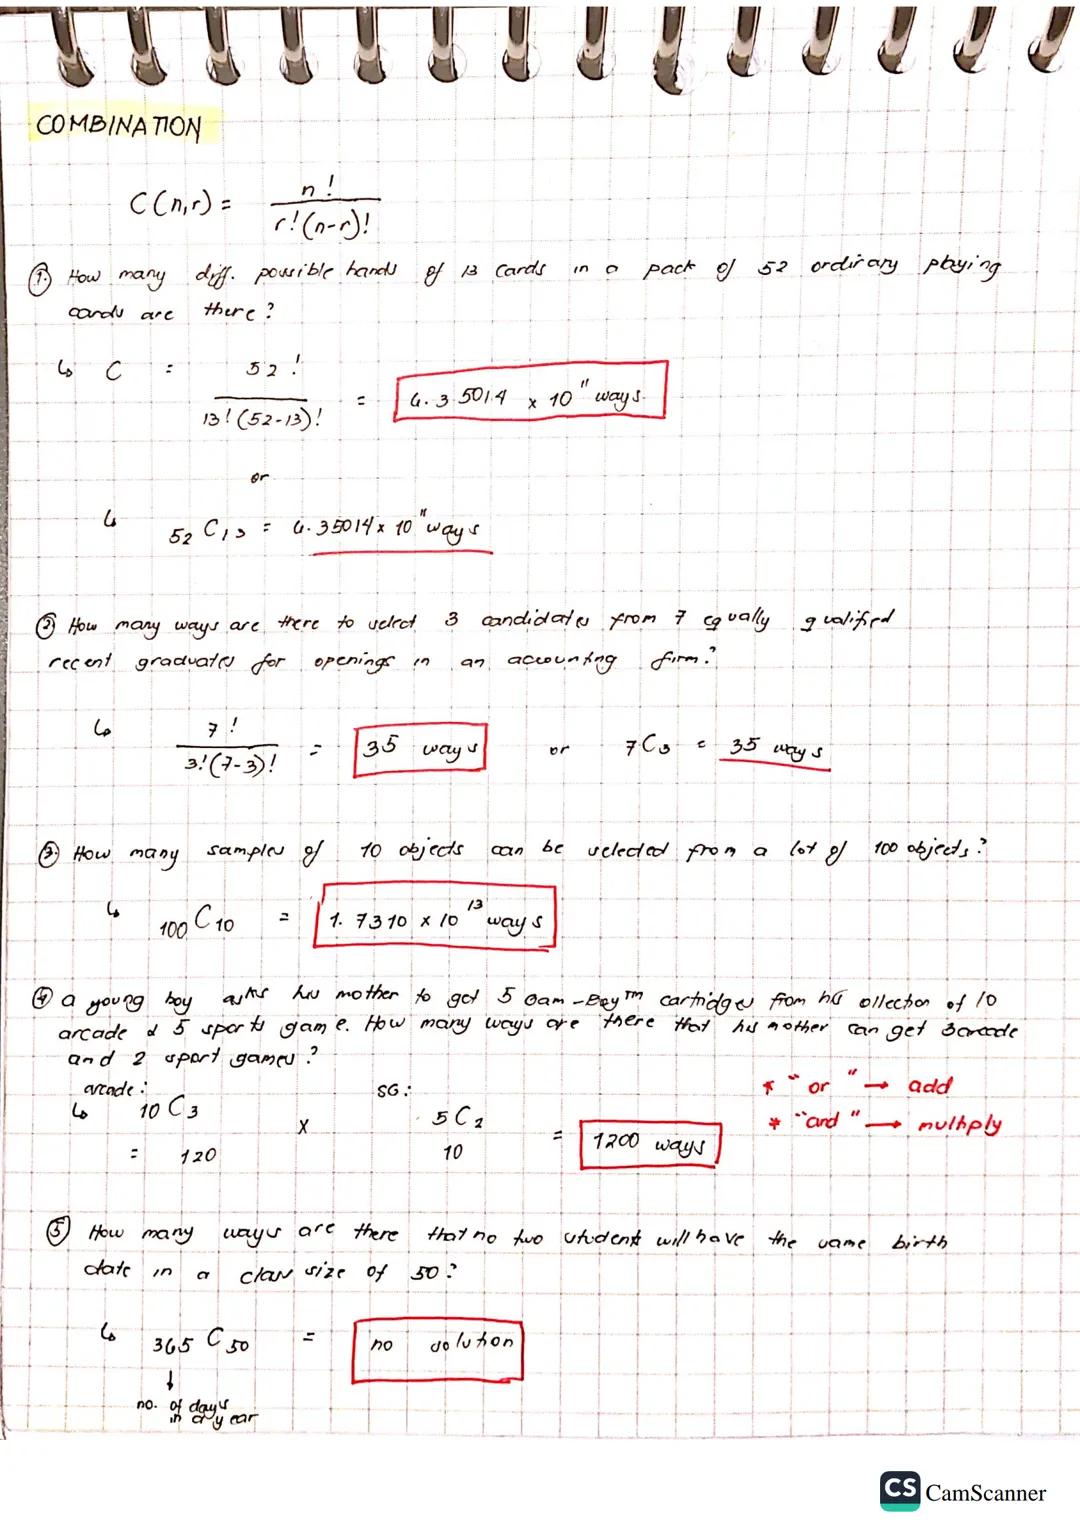 COMBINATION
C(n,r) = n! / r!(n-r)!
1. How many diff. possible hands of 13 cards in a pack of 52 ordinary playing
cards are there?
↳ C = 52! / 13!(52-13)! = 4.35014 x 10^11 ways.
or
↳ 52 C 13 = 4.35014 x 10^11 ways
2. How many ways are there to select 3 candidates from 7 equally qualified
recent graduates for openings in an accounting firm?
↳ 7! / 3!(7-3)! = 35 ways or 7C3 = 35 ways
3. How many samples of 10 objects can be selected from a lot of 100 objects?
↳ 100 C 10 = 1.7310 x 10^13 ways
4 a young boy asks his mother to get 5 Gam-Boy™ cartridges from his ollection of 10
arcade & 5 sports game. How many ways are there that his mother can get 3 arcade
and 2 sport games?
arcade: SG:
↳ 10 C 3 x 5 C 2 = 1200 ways
= 120 10
* "or" → add
* "and" → multiply
5 How many ways are there that no two students will have the same birth
date in a class size of 50?
↳ 365 C 50 = no solution
↓
no. of days
in a year
CS CamScanner